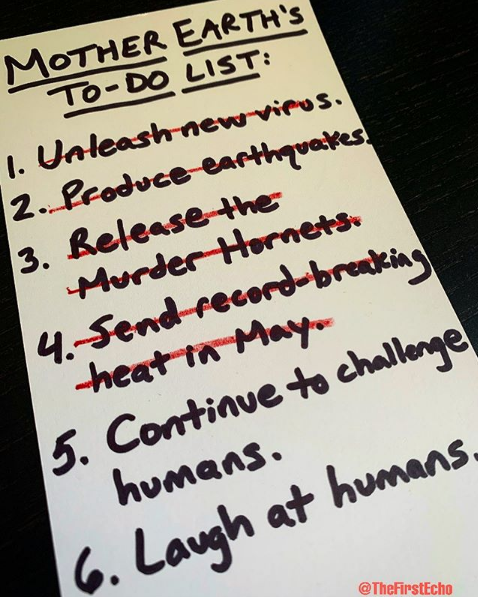 MOTHER EARTH'S
TO-DO LIST:
1. Unleash new virus.
2. Produce earthquakes.
3. Release the
Murder Hornets.
4. Send record-breaking
heat in May.
5. Continue to challenge
humans.
6. Laugh at humans.
@TheFirstEcho